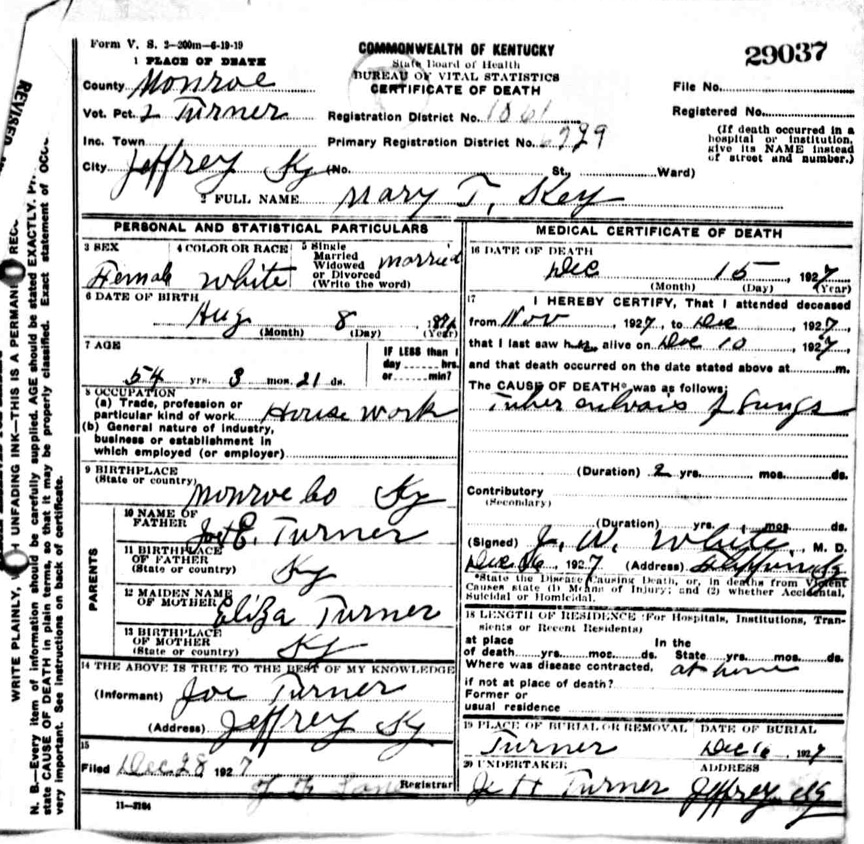 Form V. S. 2-200m-6-19-19
1 PLACE OF DEATH
COMMONWEALTH OF KENTUCKY
State Board of Health
BUREAU OF VITAL STATISTICS
CERTIFICATE OF DEATH
29037
County Monroe
File No.
Vot. Pct. 2 Turner
Registration District No. 1061
Registered No.
Inc. Town
Primary Registration District No. 6729
(If death occurred in a hospital or institution, give its NAME instead of street and number.)
City Jeffrey Ky (No. St., Ward)
2 FULL NAME Mary T. Key
PERSONAL AND STATISTICAL PARTICULARS
3 SEX Female
4 COLOR OR RACE White
5 Single Married Widowed or Divorced (Write the word) married
6 DATE OF BIRTH
Aug 8
(Month) (Day) (Year)
7 AGE
54 yrs. 3 mos. 21 ds.
IF LESS than 1 day hrs. or min?
8 OCCUPATION
(a) Trade, profession or particular kind of work House work
(b) General nature of industry, business or establishment in which employed (or employer)
9 BIRTHPLACE
(State or country) Monroe Co Ky
PARENTS
10 NAME OF FATHER Joe E. Turner
11 BIRTHPLACE OF FATHER
(State or country) Ky
12 MAIDEN NAME OF MOTHER Eliza Turner
13 BIRTHPLACE OF MOTHER
(State or country) Ky
14 THE ABOVE IS TRUE TO THE BEST OF MY KNOWLEDGE
(Informant) Joe Turner
(Address) Jeffrey Ky
15
Filed Dec 28 1927
Registrar
11-3184
MEDICAL CERTIFICATE OF DEATH
16 DATE OF DEATH
Dec 15, 1927
(Month) (Day) (Year)
17 I HEREBY CERTIFY, That I attended deceased
from Nov, 1927, to Dec, 1927,
that I last saw her alive on Dec 10, 1927,
and that death occurred on the date stated above at m.
The CAUSE OF DEATH* was as follows:
Tuberculosis of Lungs
(Duration) 2 yrs. mos. ds.
Contributory
(Secondary)
(Duration) yrs. mos. ds.
(Signed) J. W. White, M. D.
Dec 16, 1927 (Address)
*State the Disease Causing Death, or, in deaths from Violent Causes state (1) Means of Injury; and (2) whether Accidental, Suicidal or Homicidal.
18 LENGTH OF RESIDENCE (For Hospitals, Institutions, Transients or Recent Residents)
at place of death yrs. mos. ds. In the State yrs. mos. ds.
Where was disease contracted, if not at place of death? at home
Former or usual residence
19 PLACE OF BURIAL OR REMOVAL
Turner
DATE OF BURIAL
Dec 16 1927
20 UNDERTAKER
J H Turner
ADDRESS
Jeffrey Ky
REVISED
N. B.—Every item of information should be carefully supplied. AGE should be stated EXACTLY.
state CAUSE OF DEATH in plain terms, so that it may be properly classified. Exact statement of
very important. See instructions on back of certificate.
WRITE PLAINLY, UNFADING INK—THIS IS A